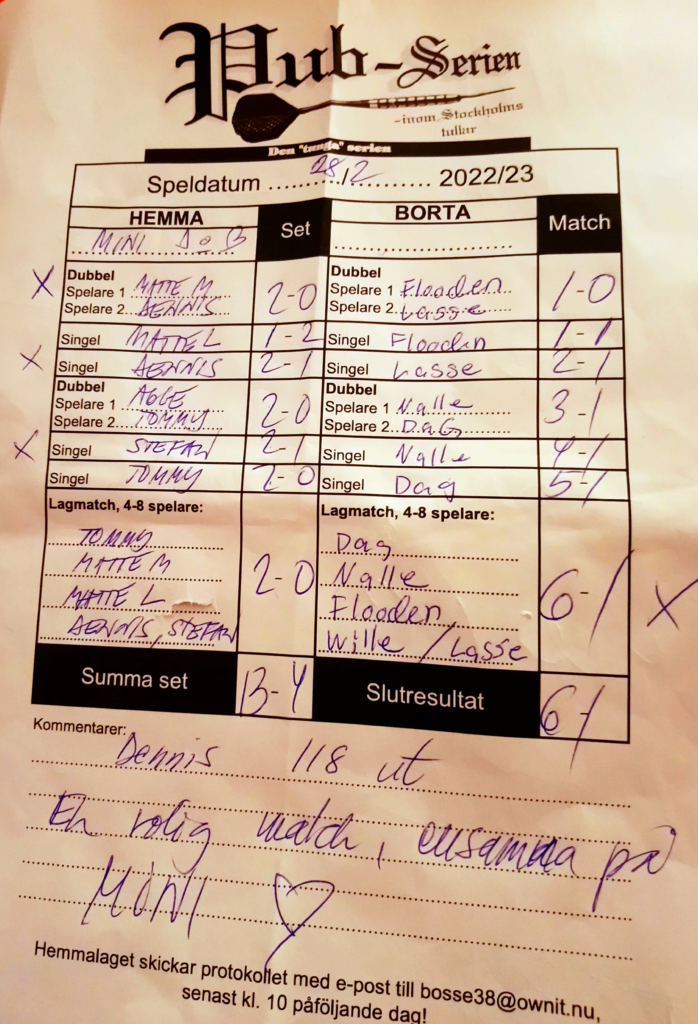 Pub-Serien
-inom Stockholms
tullar
Den "tunga" serien
Speldatum ........28/2.......... 2022/23
HEMMA Set BORTA Match
MINI D o B
X Dubbel Dubbel
Spelare 1 MATTE M 2-0 Spelare 1 Flooden 1-0
Spelare 2 DENNIS Spelare 2 Lasse
Singel MATTE L 1-2 Singel Flooden 1-1
X Singel DENNIS 2-1 Singel Lasse 2-1
Dubbel Dubbel
Spelare 1 2-0 Spelare 1 Nalle 3-1
Spelare 2 TOMMY Spelare 2 DAG
X Singel STEFAN 2-1 Singel Nalle 4-1
Singel TOMMY 2-0 Singel Dag 5-1
Lagmatch, 4-8 spelare: Lagmatch, 4-8 spelare:
TOMMY Dag
MATTE M 2-0 Nalle 6-1 X
MATTE L Flooden
DENNIS, STEFAN Wille / Lasse
Summa set 13-4 Slutresultat 6-1
Kommentarer:
Dennis 118 ut
En rolig match, ensamma på
MINI ♡
Hemmalaget skickar protokollet med e-post till bosse38@ownit.nu,
senast kl. 10 påföljande dag!